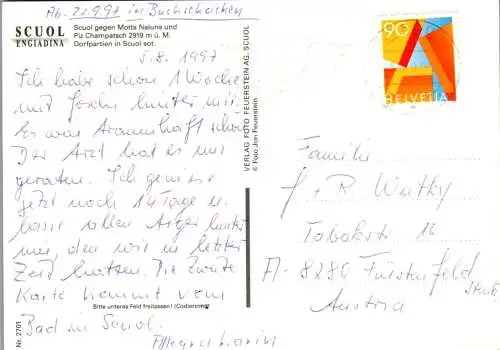 Ab. 21.9.97 in Buchscharsken
SCUOL
ENGIADINA
Scuol gegen Motta Naluns und
Piz Champatsch 2919 m ü. M.
Dorfpartien in Scuol sot.
5.8.1997
Ich habe schon 1 Woche
mit hinter mir.
Es war traumhaft schön
Der Arzt hat es mir
geraten. Ich genieße
jetzt noch 14 Tage u.
lasse allen Ärger hinter
mir, den wir in letzter
Zeit hatten. Die zweite
Karte kommt vom
Bitte unteres Feld freilassen! (Codierzone)
Bad in Scuol.
Allegra Karin
Nr. 2701
VERLAG FOTO FEUERSTEIN AG, SCUOL
© Foto Jon Feuerstein
90
A
HELVETIA
Familie
J + R Wutky
Tabakstr 16
A-8280 Fürstenfeld
Austria